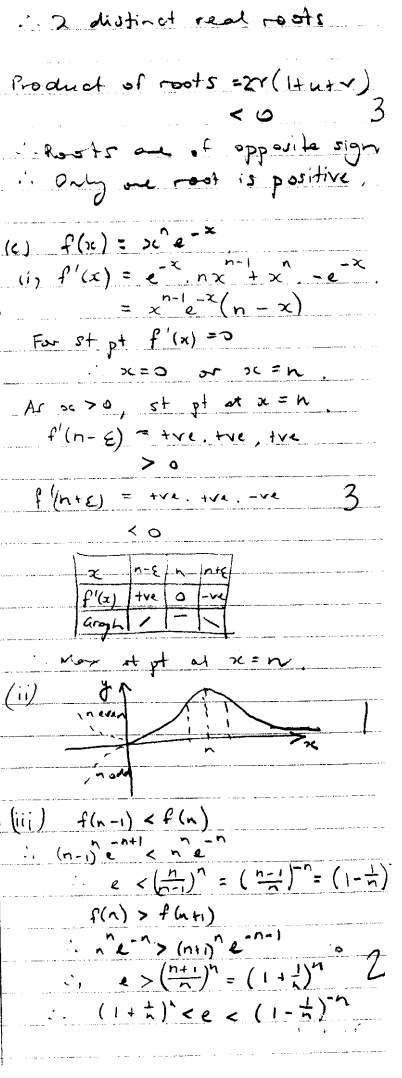 ∴ 2 distinct real roots
Product of roots = 2v(1+u+v)
< 0 3
∴ Roots are of opposite sign
∴ Only one root is positive.
(c) f(x) = xⁿ e⁻ˣ
(i) f'(x) = e⁻ˣ. nxⁿ⁻¹ + xⁿ. -e⁻ˣ.
= xⁿ⁻¹ e⁻ˣ (n - x)
For st pt f'(x) = 0
∴ x = 0 or x = n.
As x > 0, st pt at x = n.
f'(n-ε) = +ve. +ve, +ve
> 0
f'(n+ε) = +ve. +ve. -ve 3
< 0
x n-ε n n+ε
f'(x) +ve 0 -ve
Graph / — \
∴ Max st pt at x = n.
(ii) y 1
n even
n x
n odd
(iii) f(n-1) < f(n)
∴ (n-1)ⁿ e⁻ⁿ⁺¹ < nⁿ e⁻ⁿ
∴ e < (n/(n-1))ⁿ = ((n-1)/n)⁻ⁿ = (1 - 1/n)
f(n) > f(n+1)
∴ nⁿ e⁻ⁿ > (n+1)ⁿ e⁻ⁿ⁻¹
∴ e > ((n+1)/n)ⁿ = (1 + 1/n)ⁿ 2
∴ (1 + 1/n)ⁿ < e < (1 - 1/n)⁻ⁿ